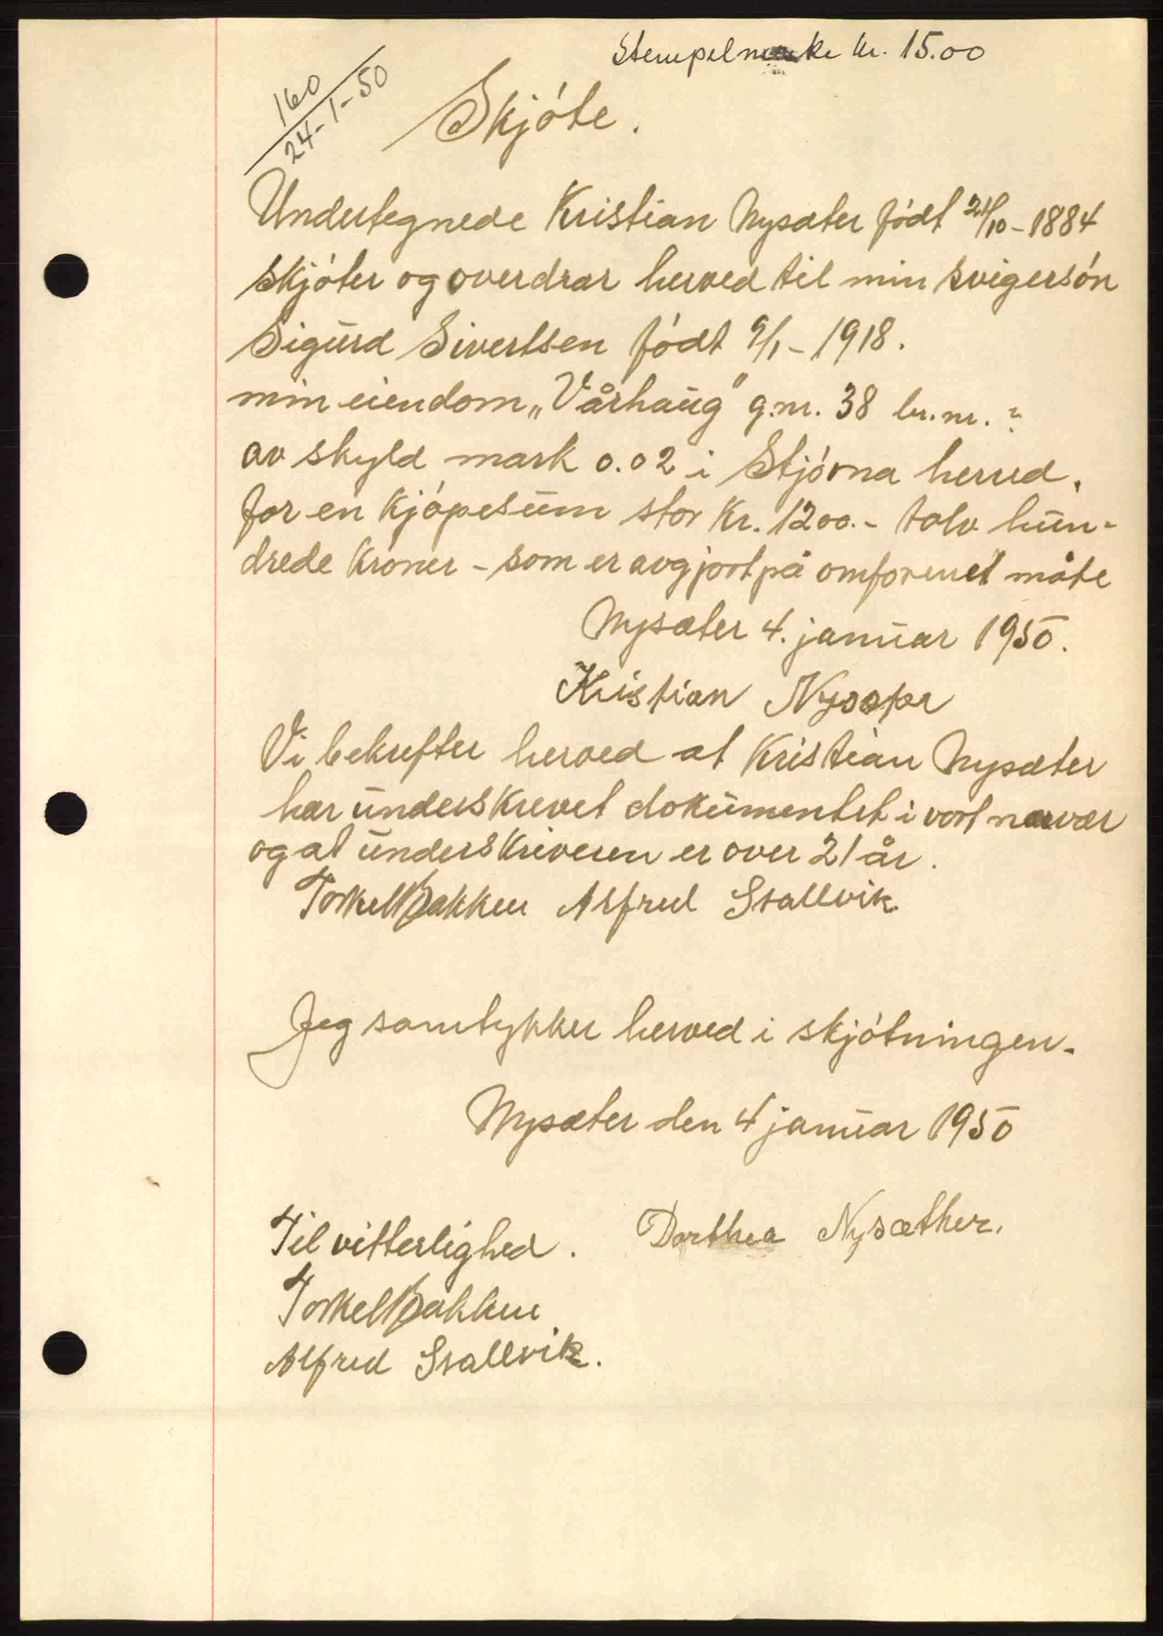 Stempelmerke kr. 15.00
160
24-1-50
Skjóte.
Undertegnede Kristian Nysæter födt 21/10-1884
Skjóter og overdrar herved til min svigersón
Sigurd Sivertsen födt 9/1-1918.
min eiendom „Vårhaug" g.nr. 38 br.nr. ?
av skyld mark 0.02 i Stjórna herred.
for en kjópesum stor kr. 1200.- tolv hun-
drede kroner - som er avgjort på omforenet måte
Nysæter 4. januar 1950.
Kristian Nysæter
Vi bekrefter herved at Kristian Nysæter
har underskrevet dokumentet i vort nærvær
og at underskriveren er over 21 år.
Torkel Bakken Alfred Stallvik
Jeg samtykker herved i skjótningen.
Nysæter den 4 januar 1950
Til vitterlighed. Dorthea Nysæther.
Torkel Bakken
Alfred Stallvik.